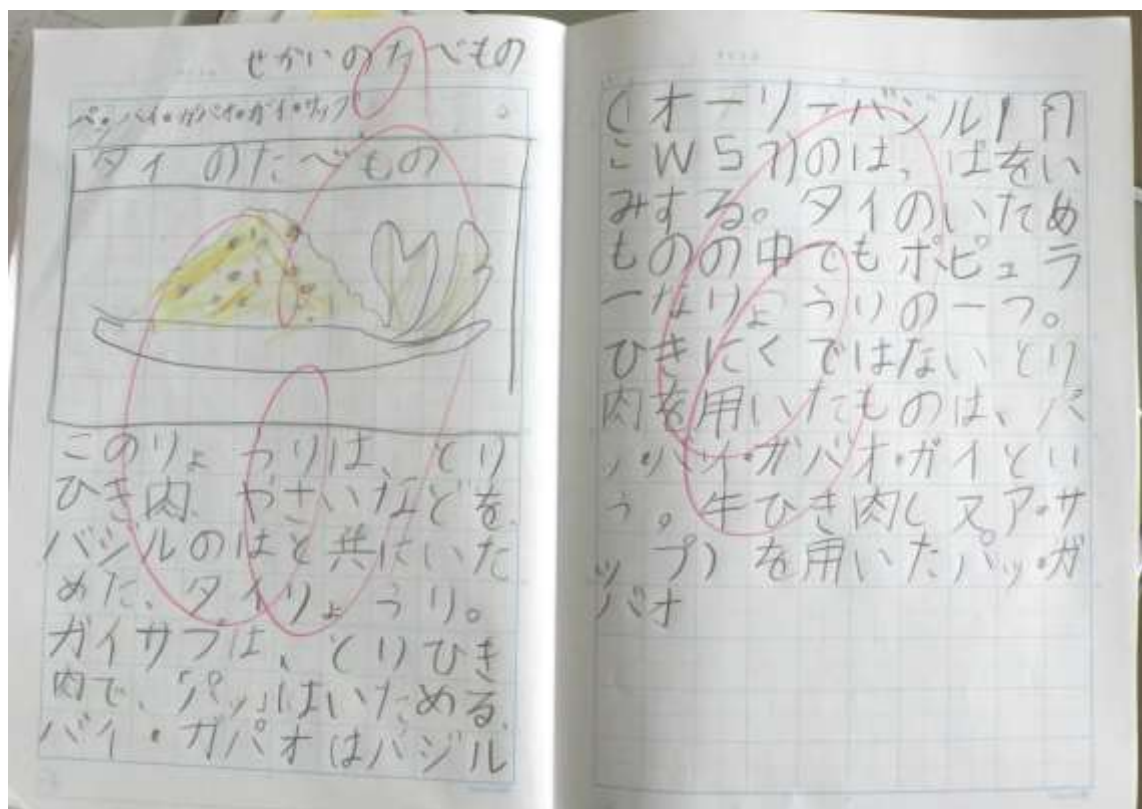 せかいのたべもの
パッ・バイ・ガパオ・ガイ・サップ
タイのたべもの
このりょうりは、とり
ひき肉、やさいなどを、
バジルのはと共にいた
めた、タイりょうり。
ガイサプは、とりひき
肉で、「パッ」はいためる、
バイ・ガパオはバジル
(オーリーバジル
のは、ばをい
みする。タイのいため
ものの中でもポピュラ
ーなりょうりの一つ。
ひきにくではないとり
肉を用いたものは、パ
ッ・バイ・ガパオ・ガイとい
う。牛ひき肉(ヌア・サ
ップ)を用いたパッ・ガ
パオ